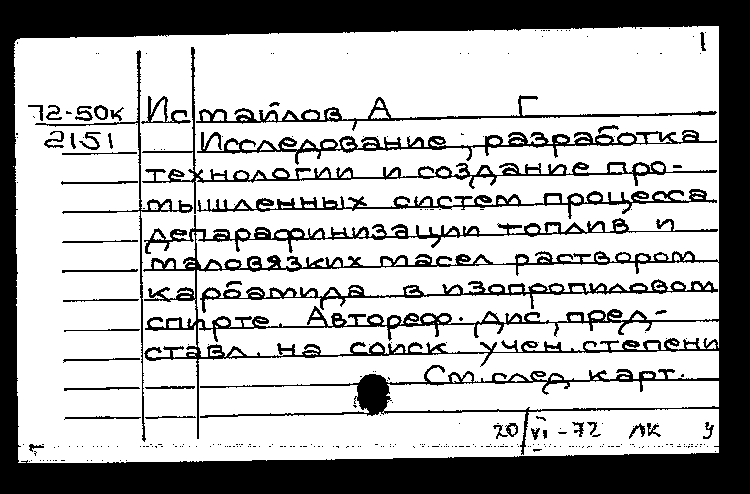 1
72-50к Исмайлов, А Г
2151 Исследование, разработка
технологии и создание про-
мышленных систем процесса
депарафинизации топлив и
маловязких масел раствором
карбамида в изопропиловом
спирте. Автореф. дис., пред-
ставл. на соиск. учен. степени
См. след. карт.
20/VI-72 ЛК У